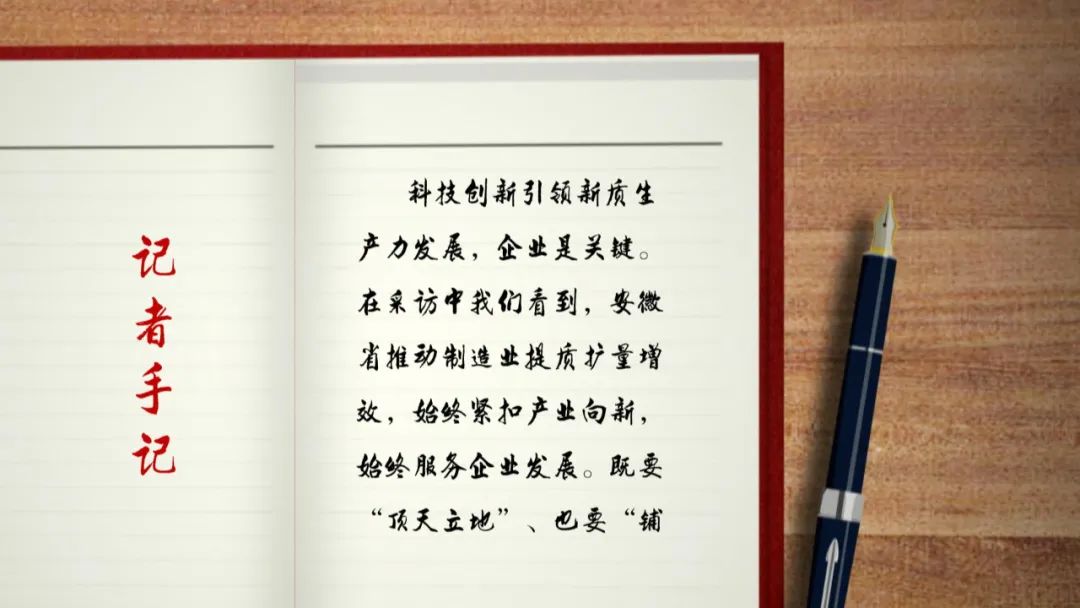 记者手记
科技创新引领新质生
产力发展，企业是关键。
在采访中我们看到，安徽
省推动制造业提质扩量增
效，始终紧扣产业向新，
始终服务企业发展。既要
“顶天立地”、也要“铺